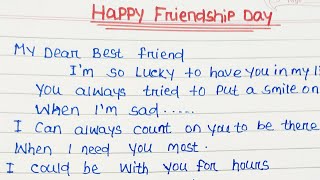 HAPPY Friendship DAY
MY Dear Best friend
I'm so Lucky to have you in my
You always tried to put a smile on
When I'm sad.....
I can always count on you to be there
When I need you most.
I could be with you for hours